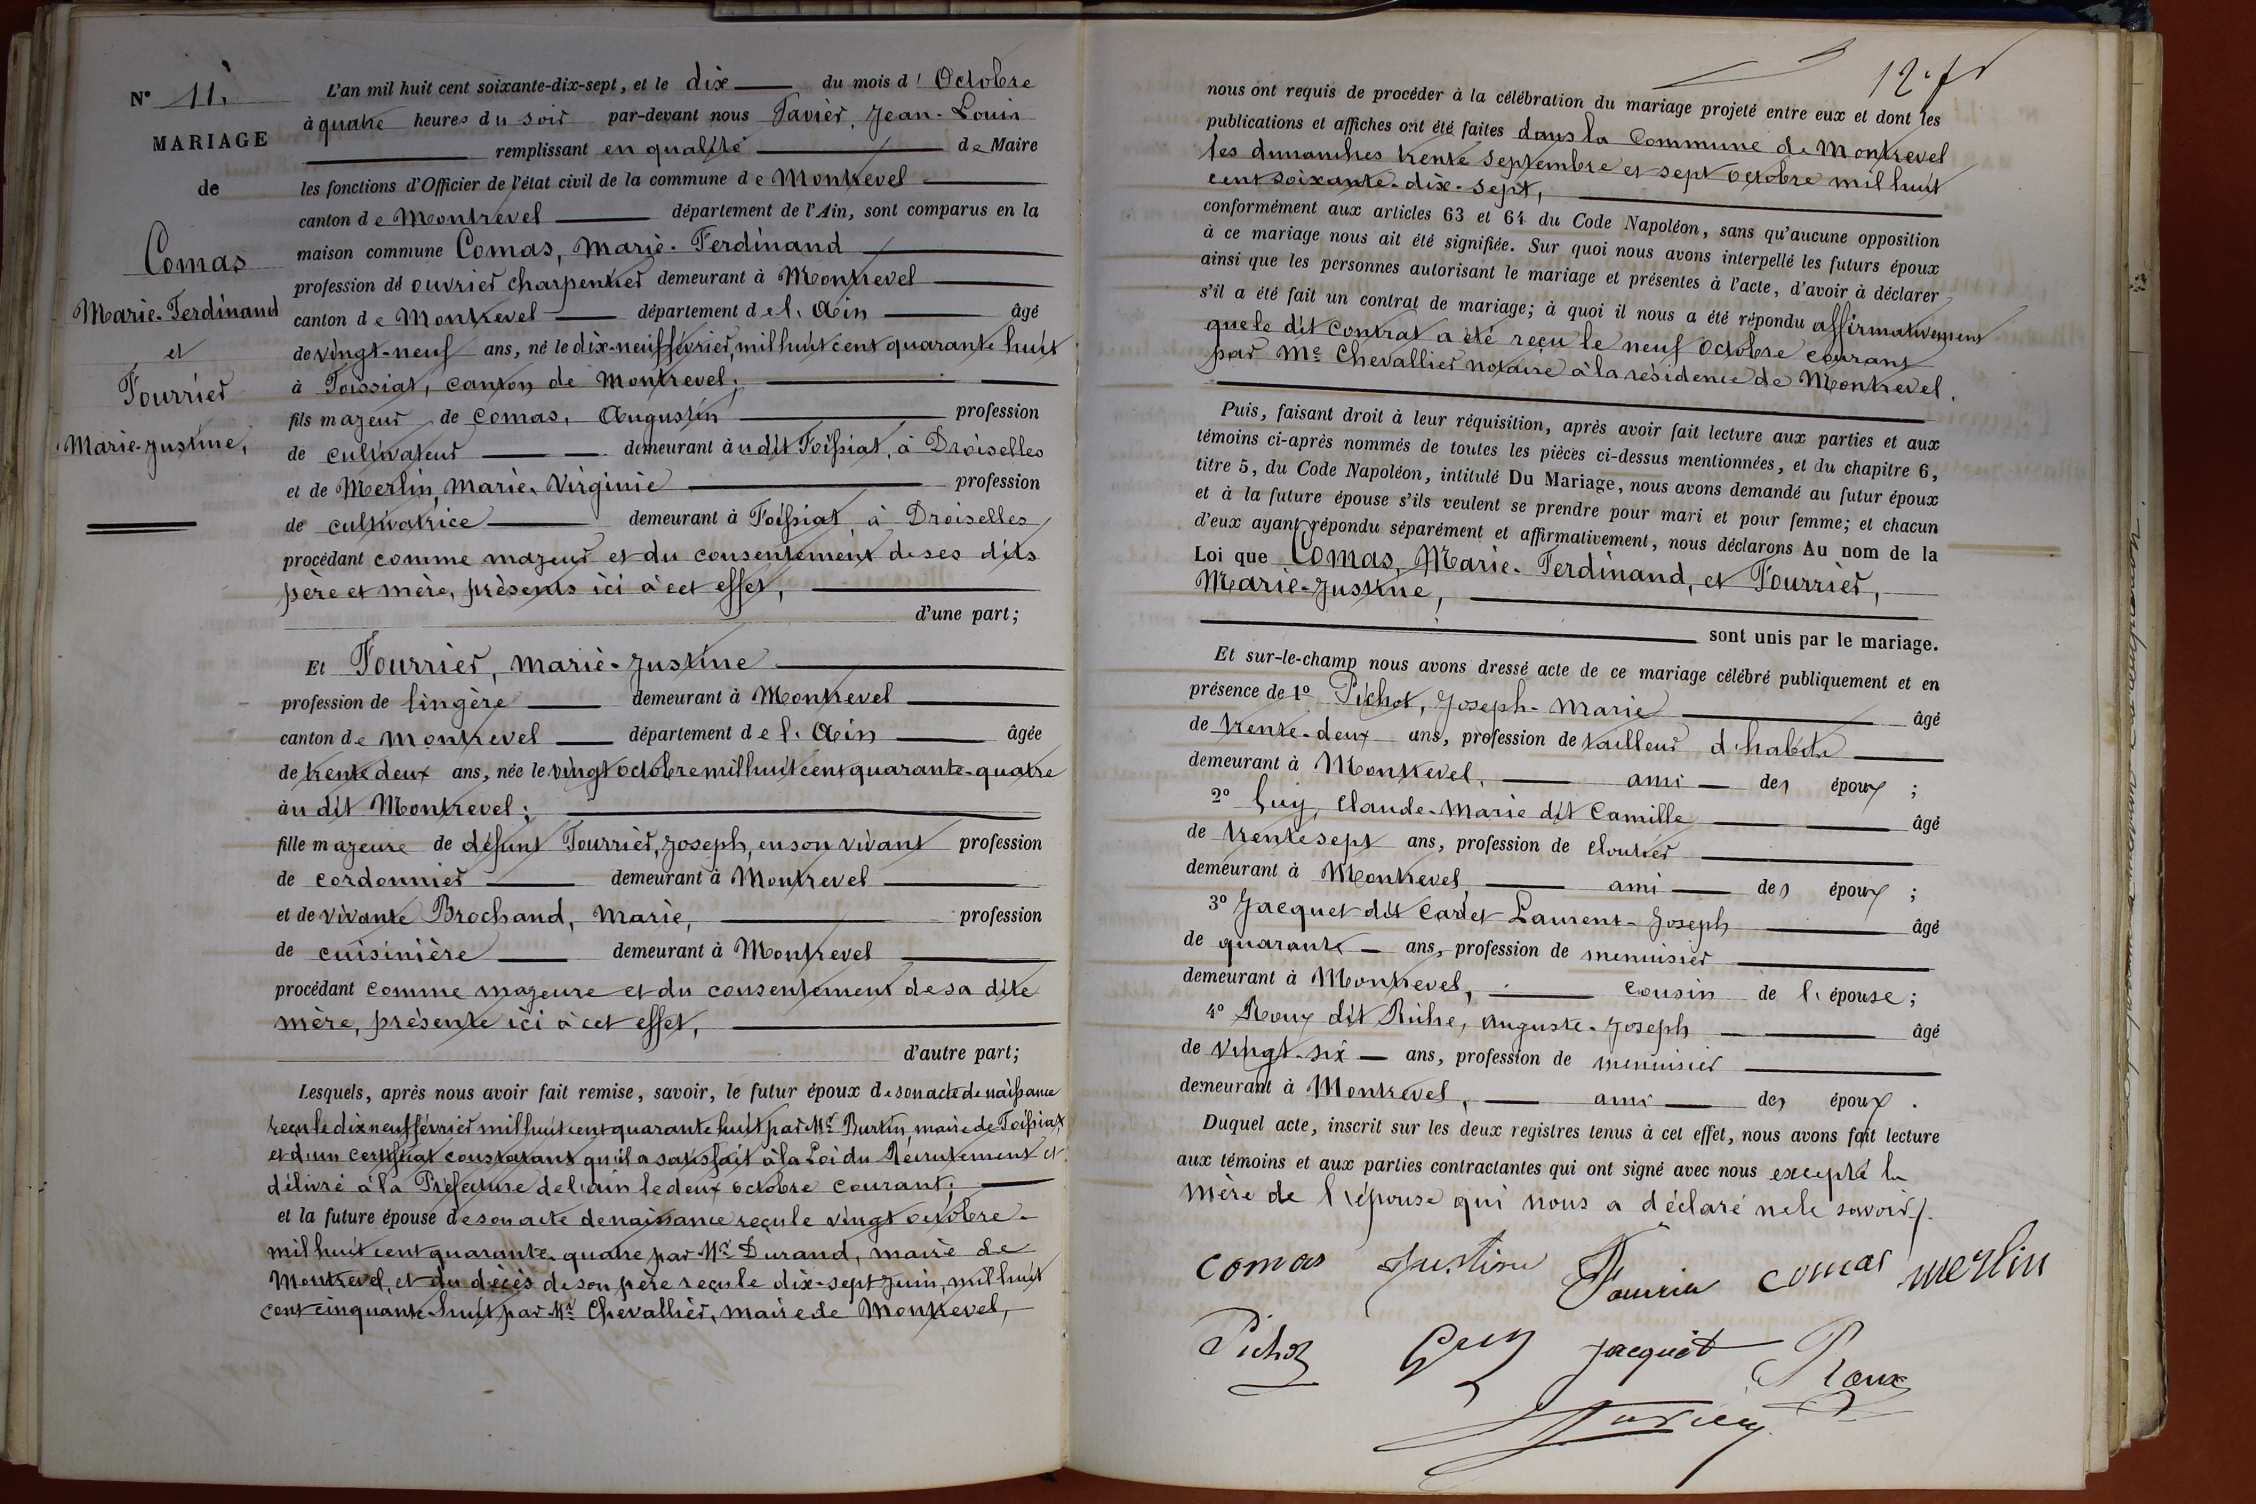 N° 11.
MARIAGE
de
Comas
Marie-Ferdinand
et
Fourrier
Marie-Justine,
L'an mil huit cent soixante-dix-sept, et le dix du mois d' Octobre
à quatre heures du soir par-devant nous Favier, Jean-Louis
remplissant en qualité de Maire
les fonctions d'Officier de l'état civil de la commune de Montrevel
canton de Montrevel département de l'Ain, sont comparus en la
maison commune Comas, Marie-Ferdinand
profession de ouvrier charpentier demeurant à Montrevel
canton de Montrevel département de l'Ain âgé
de vingt-neuf ans, né le dix-neuf février, mil huit cent quarante huit
à Foissiat, canton de Montrevel;
fils majeur de Comas, Augustin profession
de cultivateur demeurant àu dit Foissiat, à Droiselles
et de Merlin, Marie, Virginie profession
de cultivatrice demeurant à Foissiat, à Droiselles
procédant comme majeur et du consentement de ses dits
père et mère, présents ici à cet effet,
d'une part;
Et Fourrier, Marie-Justine
profession de lingère demeurant à Montrevel
canton de Montrevel département de l'Ain âgée
de trente deux ans, née le vingt octobre mil huit cent quarante-quatre
àu dit Montrevel;
fille majeure de défunt Fourrier, Joseph, en son vivant profession
de cordonnier demeurant à Montrevel
et de vivante Brochand, Marie, profession
de cuisinière demeurant à Montrevel
procédant comme majeure et du consentement de sa dite
mère, présente ici à cet effet,
d'autre part;
Lesquels, après nous avoir fait remise, savoir, le futur époux de son acte de naissance
reçu le dix neuf février mil huit cent quarante huit par Mr Burtin, maire de Foissiat,
et d'un certificat constatant qu'il a satisfait à la Loi du Récrutement et
délivré à la Préfecture de l'ain le deux octobre courant;
et la future épouse de son acte de naissance reçu le vingt octobre
mil huit cent quarante-quatre par Mr Durand, maire de
Montrevel, et du décès de son père reçu le dix-sept juin, mil huit
cent cinquante-huit par Mr Chevallier, maire de Montrevel,
nous ont requis de procéder à la célébration du mariage projeté entre eux et dont les
publications et affiches ont été faites dans la Commune de Montrevel
les dimanches trente septembre et sept octobre mil huit
cent soixante-dix-sept,
conformément aux articles 63 et 64 du Code Napoléon, sans qu'aucune opposition
à ce mariage nous ait été signifiée. Sur quoi nous avons interpellé les futurs époux
ainsi que les personnes autorisant le mariage et présentes à l'acte, d'avoir à déclarer
s'il a été fait un contrat de mariage; à quoi il nous a été répondu affirmativement
que le dit contrat a été reçu le neuf octobre courant
par Me Chevallier notaire à la résidence de Montrevel.
Puis, faisant droit à leur réquisition, après avoir fait lecture aux parties et aux
témoins ci-après nommés de toutes les pièces ci-dessus mentionnées, et du chapitre 6,
titre 5, du Code Napoléon, intitulé Du Mariage, nous avons demandé au futur époux
et à la future épouse s'ils veulent se prendre pour mari et pour femme; et chacun
d'eux ayant répondu séparément et affirmativement, nous déclarons Au nom de la
Loi que Comas, Marie-Ferdinand, et Fourrier,
Marie-Justine,
sont unis par le mariage.
Et sur-le-champ nous avons dressé acte de ce mariage célébré publiquement et en
présence de 1° Pichot, Joseph-Marie âgé
de trente-deux ans, profession de tailleur d'habits
demeurant à Montrevel, ami des époux ;
2° Guy, Claude-Marie dit Camille âgé
de trente sept ans, profession de cloutier
demeurant à Montrevel, ami des époux ;
3° Jacquet dit Cadet Laurent-Joseph âgé
de quarante ans, profession de menuisier
demeurant à Montrevel, cousin de l'épouse;
4° Roux dit Riche, Auguste-Joseph âgé
de vingt-six ans, profession de menuisier
demeurant à Montrevel, ami des époux.
Duquel acte, inscrit sur les deux registres tenus à cet effet, nous avons fait lecture
aux témoins et aux parties contractantes qui ont signé avec nous excepté la
mère de l'épouse qui nous a déclaré ne le savoir.
comas Justine Fourrier comas merlin
Pichot Guy Jacquet Roux
Favier